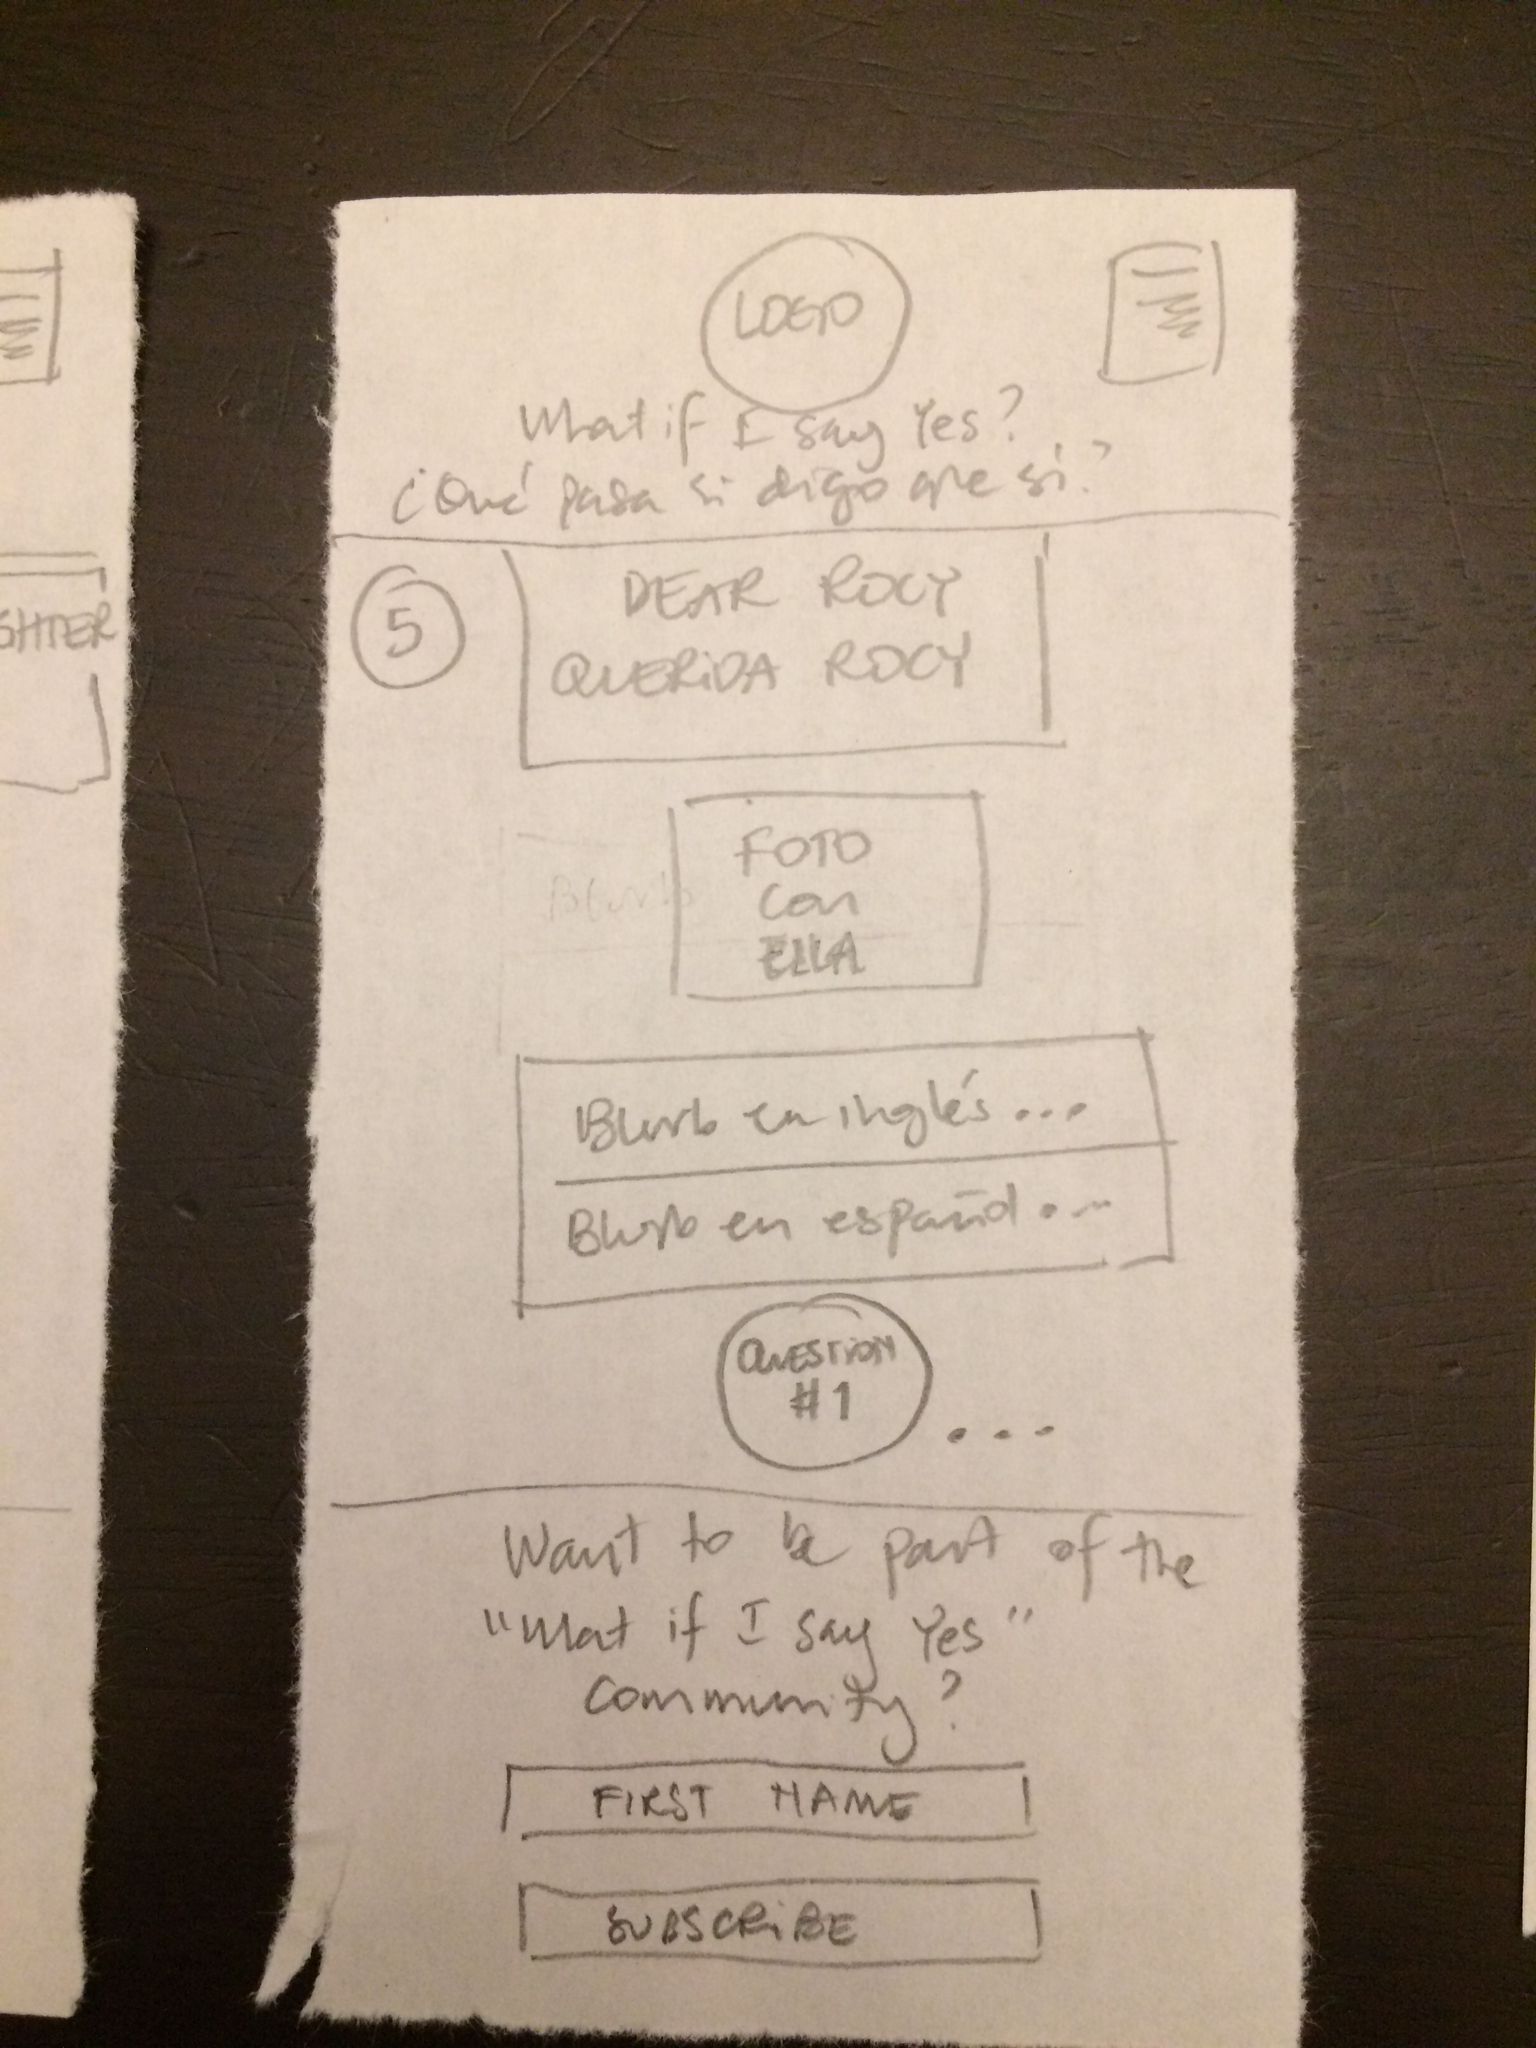 LOGO
What if I say Yes?
¿Qué pasa si digo que sí?
5
DEAR ROCY
QUERIDA ROCY
FOTO
con
ELLA
Blurb
Blurb en inglés...
Blurb en español...
QUESTION
#1
...
Want to be part of the
"What if I say Yes"
community?
FIRST NAME
SUBSCRIBE
GHTER